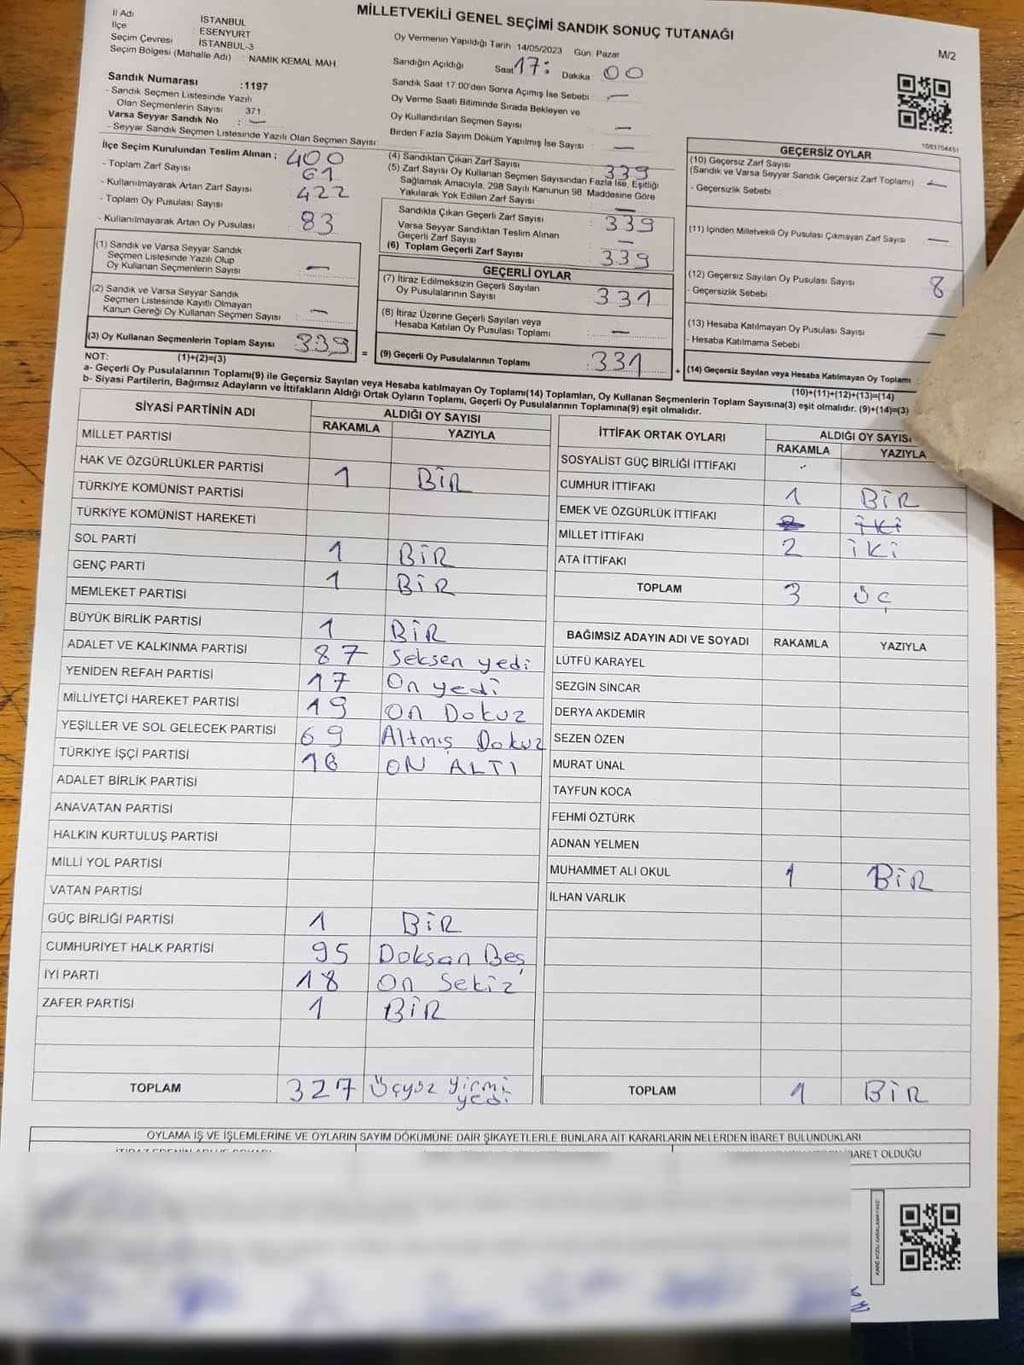 MİLLETVEKİLİ GENEL SEÇİMİ SANDIK SONUÇ TUTANAĞI
M/2
İl Adı İSTANBUL
İlçe ESENYURT
Seçim Çevresi İSTANBUL-3
Seçim Bölgesi (Mahalle Adı) : NAMIK KEMAL MAH
Oy Vermenin Yapıldığı Tarih 14/05/2023 Gün: Pazar
Sandığın Açıldığı Saat 17: Dakika : 00
Sandık Saat 17:00'den Sonra Açılmış İse Sebebi : —
Oy Verme Saati Bitiminde Sırada Bekleyen ve
Oy Kullandırılan Seçmen Sayısı : —
Birden Fazla Sayım Döküm Yapılmış İse Sayısı : —
Sandık Numarası :1197
- Sandık Seçmen Listesinde Yazılı
Olan Seçmenlerin Sayısı 371
Varsa Seyyar Sandık No : —
- Seyyar Sandık Seçmen Listesinde Yazılı Olan Seçmen Sayısı
İlçe Seçim Kurulundan Teslim Alınan ;
- Toplam Zarf Sayısı : 400
- Kullanılmayarak Artan Zarf Sayısı : 61
- Toplam Oy Pusulası Sayısı : 422
- Kullanılmayarak Artan Oy Pusulası : 83
(1) Sandık ve Varsa Seyyar Sandık
Seçmen Listesinde Yazılı Olup
Oy Kullanan Seçmenlerin Sayısı —
(2) Sandık ve Varsa Seyyar Sandık
Seçmen Listesinde Kayıtlı Olmayan
Kanun Gereği Oy Kullanan Seçmen Sayısı —
(3) Oy Kullanan Seçmenlerin Toplam Sayısı 339
(1)+(2)=(3)
(4) Sandıktan Çıkan Zarf Sayısı 339
(5) Zarf Sayısı Oy Kullanan Seçmen Sayısından Fazla İse, Eşitliği
Sağlamak Amacıyla, 298 Sayılı Kanunun 98. Maddesine Göre
Yakılarak Yok Edilen Zarf Sayısı —
Sandıkta Çıkan Geçerli Zarf Sayısı 339
Varsa Seyyar Sandıktan Teslim Alınan
Geçerli Zarf Sayısı —
(6) Toplam Geçerli Zarf Sayısı 339
GEÇERLİ OYLAR
(7) İtiraz Edilmeksizin Geçerli Sayılan
Oy Pusulalarının Sayısı 331
(8) İtiraz Üzerine Geçerli Sayılan veya
Hesaba Katılan Oy Pusulası Toplamı —
= (9) Geçerli Oy Pusulalarının Toplamı 331 +
GEÇERSİZ OYLAR
(10) Geçersiz Zarf Sayısı
(Sandık ve Varsa Seyyar Sandık Geçersiz Zarf Toplamı) —
- Geçersizlik Sebebi
(11) İçinden Milletvekili Oy Pusulası Çıkmayan Zarf Sayısı —
(12) Geçersiz Sayılan Oy Pusulası Sayısı 8
- Geçersizlik Sebebi
(13) Hesaba Katılmayan Oy Pusulası Sayısı
- Hesaba Katılmama Sebebi
(14) Geçersiz Sayılan veya Hesaba Katılmayan Oy Toplamı
(10)+(11)+(12)+(13)=(14)
NOT:
a- Geçerli Oy Pusulalarının Toplamı(9) ile Geçersiz Sayılan veya Hesaba katılmayan Oy Toplamı(14) Toplamları, Oy Kullanan Seçmenlerin Toplam Sayısına(3) eşit olmalıdır. (9)+(14)=(3)
b- Siyasi Partilerin, Bağımsız Adayların ve İttifakların Aldığı Ortak Oyların Toplamı, Geçerli Oy Pusulalarının Toplamına(9) eşit olmalıdır.
SİYASİ PARTİNİN ADI ALDIĞI OY SAYISI
RAKAMLA YAZIYLA
MİLLET PARTİSİ
HAK VE ÖZGÜRLÜKLER PARTİSİ 1 BİR
TÜRKİYE KOMÜNİST PARTİSİ
TÜRKİYE KOMÜNİST HAREKETİ
SOL PARTİ 1 BİR
GENÇ PARTİ 1 BİR
MEMLEKET PARTİSİ
BÜYÜK BİRLİK PARTİSİ 1 BİR
ADALET VE KALKINMA PARTİSİ 87 Seksen yedi
YENİDEN REFAH PARTİSİ 17 On yedi
MİLLİYETÇİ HAREKET PARTİSİ 19 On Dokuz
YEŞİLLER VE SOL GELECEK PARTİSİ 69 Altmış Dokuz
TÜRKİYE İŞÇİ PARTİSİ 16 ON ALTI
ADALET BİRLİK PARTİSİ
ANAVATAN PARTİSİ
HALKIN KURTULUŞ PARTİSİ
MİLLİ YOL PARTİSİ
VATAN PARTİSİ
GÜÇ BİRLİĞİ PARTİSİ 1 BİR
CUMHURİYET HALK PARTİSİ 95 Doksan Beş
İYİ PARTİ 18 On Sekiz
ZAFER PARTİSİ 1 BİR
TOPLAM 327 Üçyüz Yirmi yedi
İTTİFAK ORTAK OYLARI ALDIĞI OY SAYISI
RAKAMLA YAZIYLA
SOSYALİST GÜÇ BİRLİĞİ İTTİFAKI
CUMHUR İTTİFAKI 1 BİR
EMEK VE ÖZGÜRLÜK İTTİFAKI 2 İKİ
MİLLET İTTİFAKI 2 İKİ
ATA İTTİFAKI
TOPLAM 3 ÜÇ
BAĞIMSIZ ADAYIN ADI VE SOYADI RAKAMLA YAZIYLA
LÜTFÜ KARAYEL
SEZGİN SİNCAR
DERYA AKDEMİR
SEZEN ÖZEN
MURAT ÜNAL
TAYFUN KOCA
FEHMİ ÖZTÜRK
ADNAN YELMEN
MUHAMMET ALİ OKUL 1 BİR
İLHAN VARLIK
TOPLAM 1 BİR
OYLAMA İŞ VE İŞLEMLERİNE VE OYLARIN SAYIM DÖKÜMÜNE DAİR ŞİKAYETLERLE BUNLARA AİT KARARLARIN NELERDEN İBARET BULUNDUKLARI
BARET OLDUĞU